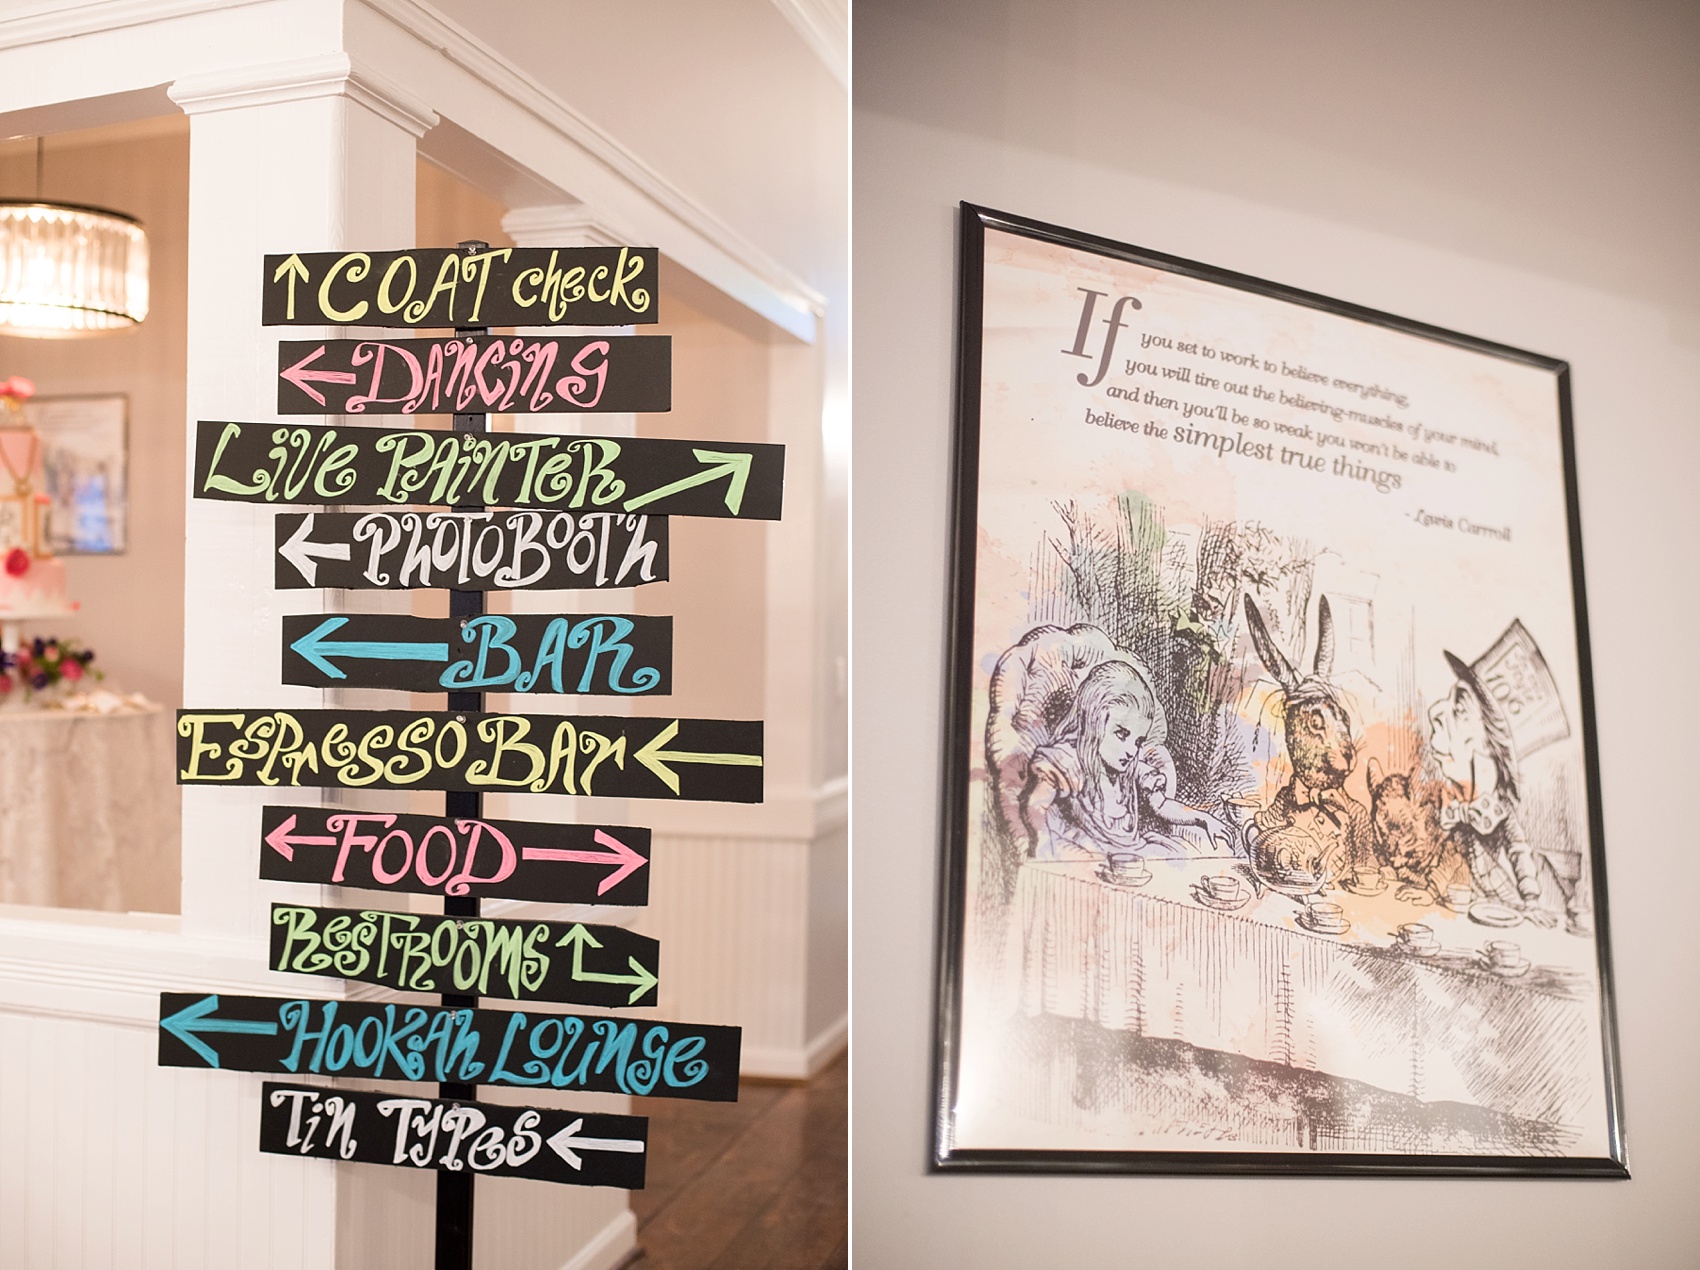 ↑ COAT check
← DANCING
LIVE PAINTER ↗
← PHOTOBOOTH
← BAR
ESPRESSO BAR ←
← FOOD →
RESTROOMS
← HOOKAH LOUNGE
TIN TYPES ←
If you set to work to believe everything,
you will tire out the believing-muscles of your mind,
and then you'll be so weak you won't be able to
believe the simplest true things
- Lewis Carroll
10/6